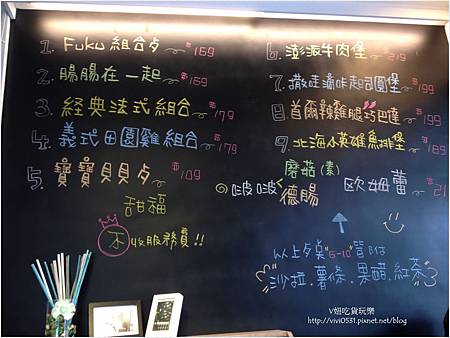 1. Fuku 組合夕 $169
2. 腸腸在一起 $169
3. 經典法式組合 $179
4. 義式田園雞組合 $179
5. 寶寶貝貝夕 $109
甜福
不收服務費!!
6. 澎派牛肉堡 $219
7. 起司圓堡 $199
8. 首爾辣雞腿巧巴達 $199
9. 北海小英雄魚排堡 $189
蘑菇(素)
啵啵德腸 歐姆蕾 $21
以上夕莫"6-10"皆附
沙拉.薯條.果醋.紅茶
V妞吃貨玩樂
http://vivi0531.pixnet.net/blog